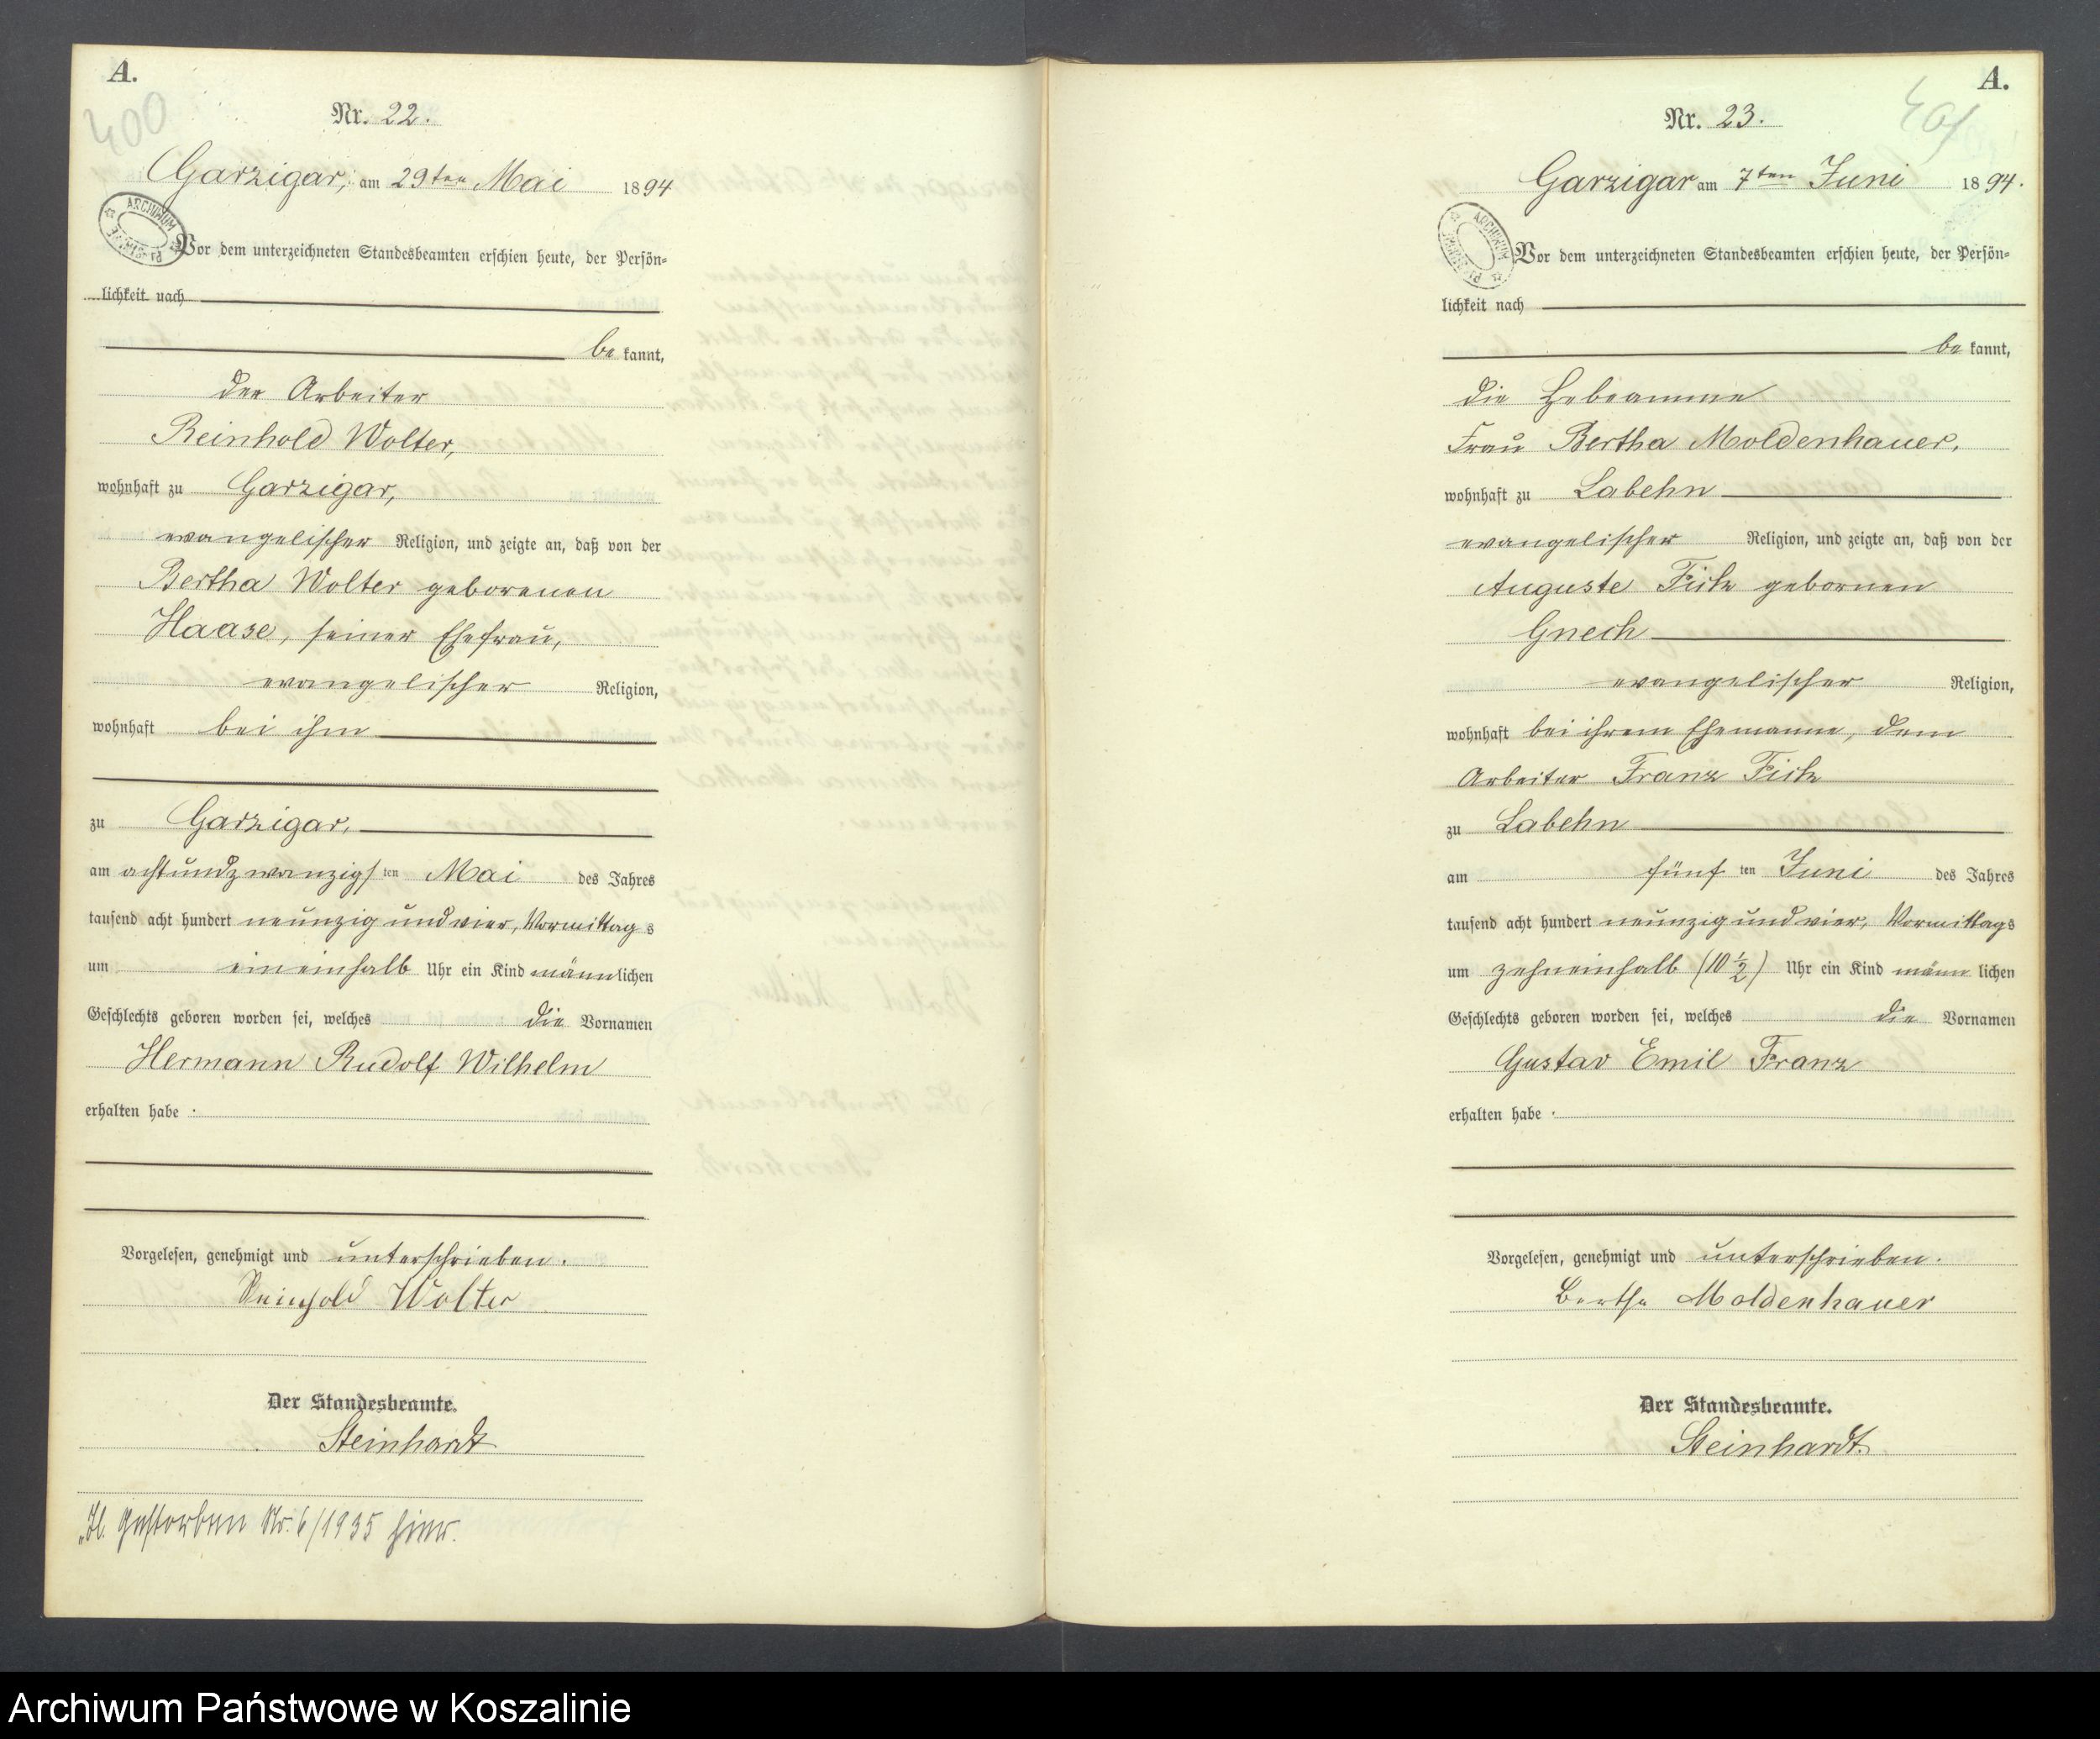 A.
400
Nr. 22.
Garzigar, am 29ten Mai 1894
ARCHIWUM
Vor dem unterzeichneten Standesbeamten erschien heute, der Persön-
lichkeit nach
be kannt,
der Arbeiter
Reinhold Wolter,
wohnhaft zu Garzigar,
evangelischer Religion, und zeigte an, daß von der
Bertha Wolter geborenen
Haase, seiner Ehefrau,
evangelischer Religion,
wohnhaft bei ihm
zu Garzigar,
am achtundzwanzigsten Mai des Jahres
tausend acht hundert neunzig und vier, Vormittags
um eineinhalb Uhr ein Kind männlichen
Geschlechts geboren worden sei, welches die Vornamen
Hermann Rudolf Wilhelm
erhalten habe.
Vorgelesen, genehmigt und unterschrieben.
Reinhold Wolter
Der Standesbeamte.
Steinhardt
gestorben Nr. 6/1935 hier.
A.
401
Nr. 23.
Garzigar am 7ten Juni 1894.
ARCHIWUM
Vor dem unterzeichneten Standesbeamten erschien heute, der Persön-
lichkeit nach
be kannt,
die Hebeamme
Frau Bertha Moldenhauer,
wohnhaft zu Labehn
evangelischer Religion, und zeigte an, daß von der
Auguste Fick gebornen
Gnech
evangelischer Religion,
wohnhaft bei ihrem Ehemanne, dem
Arbeiter Franz Fick
zu Labehn
am fünf ten Juni des Jahres
tausend acht hundert neunzig und vier, Vormittags
um zehneinhalb (10 1/2) Uhr ein Kind männlichen
Geschlechts geboren worden sei, welches die Vornamen
Gustav Emil Franz
erhalten habe.
Vorgelesen, genehmigt und unterschrieben.
Bertha Moldenhauer
Der Standesbeamte.
Steinhardt
Archiwum Państwowe w Koszalinie